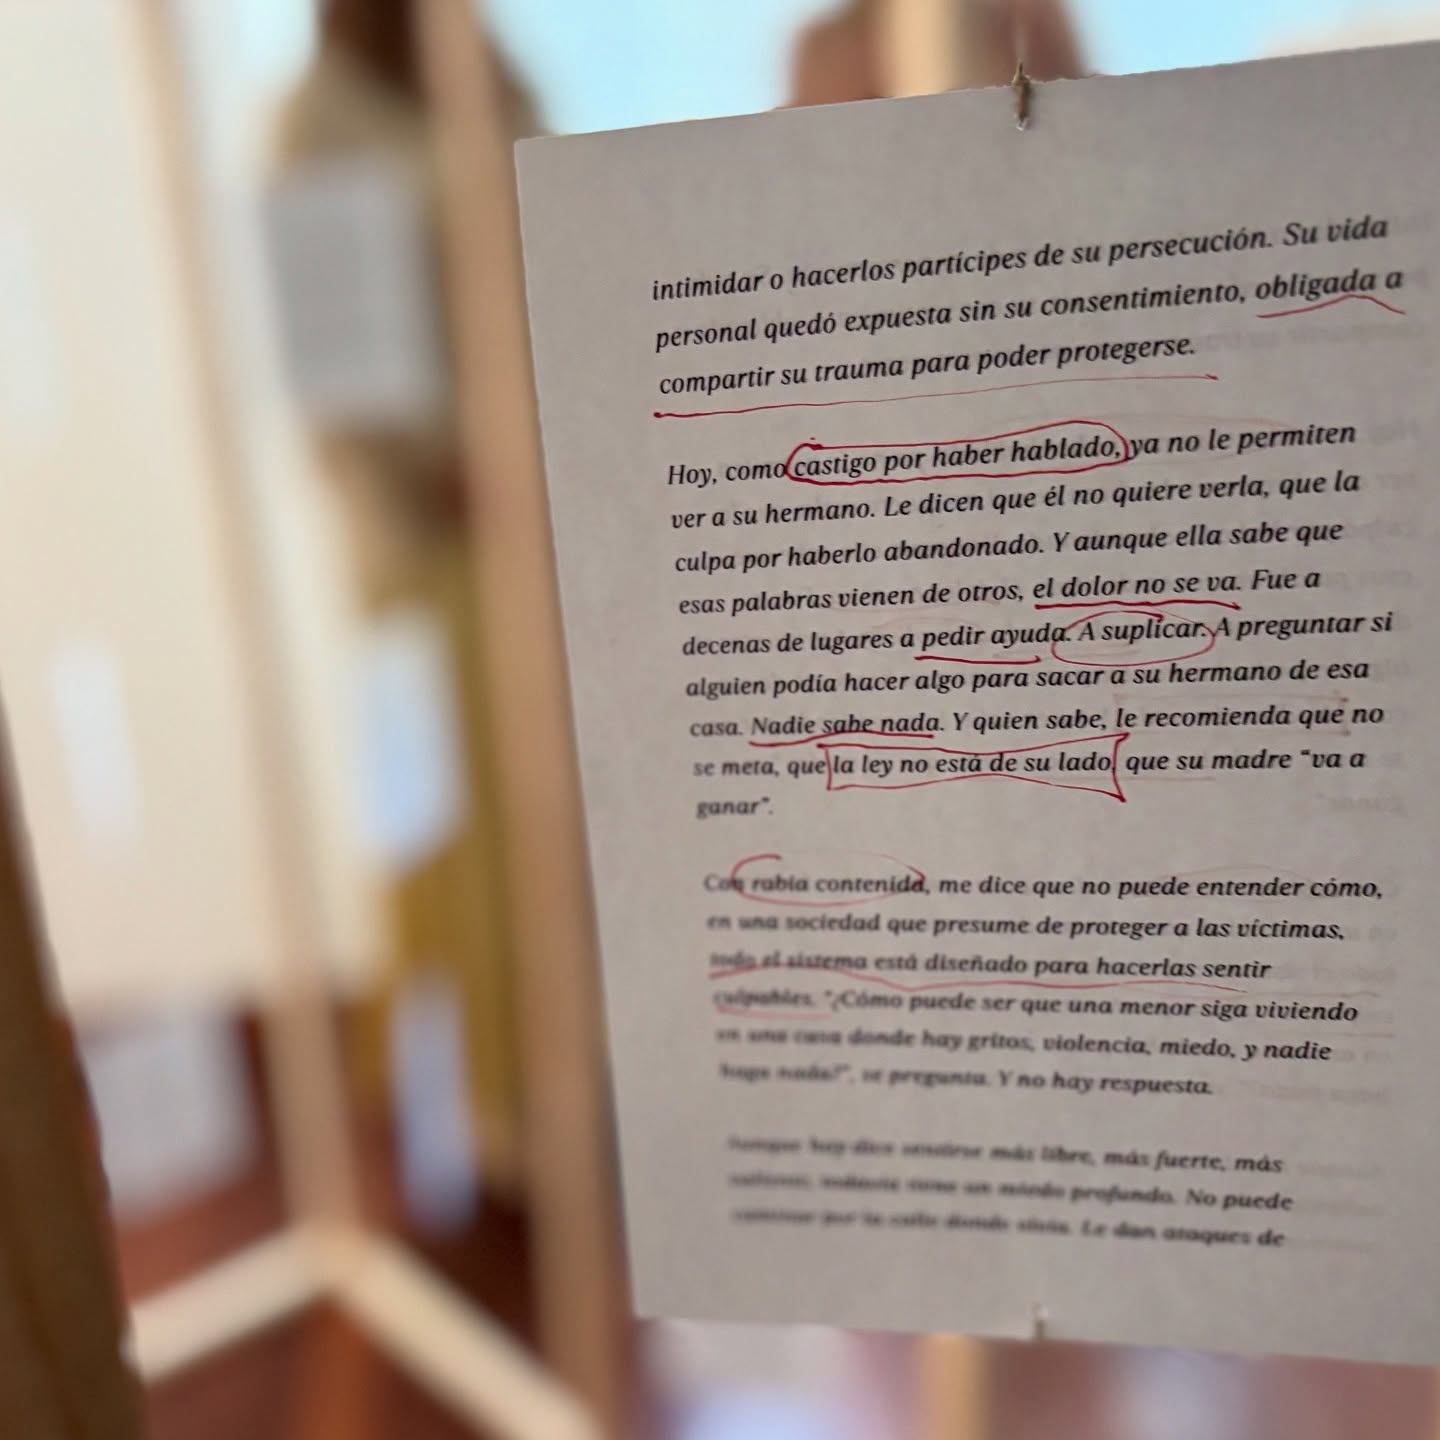 intimidar o hacerlos partícipes de su persecución. Su vida
personal quedó expuesta sin su consentimiento, obligada a
compartir su trauma para poder protegerse.
Hoy, como castigo por haber hablado, ya no le permiten
ver a su hermano. Le dicen que él no quiere verla, que la
culpa por haberlo abandonado. Y aunque ella sabe que
esas palabras vienen de otros, el dolor no se va. Fue a
decenas de lugares a pedir ayuda. A suplicar. A preguntar si
alguien podía hacer algo para sacar a su hermano de esa
casa. Nadie sabe nada. Y quien sabe, le recomienda que no
se meta, que la ley no está de su lado, que su madre “va a
ganar”.
Con rabia contenida, me dice que no puede entender cómo,
en una sociedad que presume de proteger a las víctimas,
todo el sistema está diseñado para hacerlas sentir
culpables. “¿Cómo puede ser que una menor siga viviendo
en una casa donde hay gritos, violencia, miedo, y nadie
haga nada?”, se pregunta. Y no hay respuesta.
Aunque hoy dice sentirse más libre, más fuerte, más
un miedo profundo. No puede
caminar por la calle donde vivía. Le dan ataques de